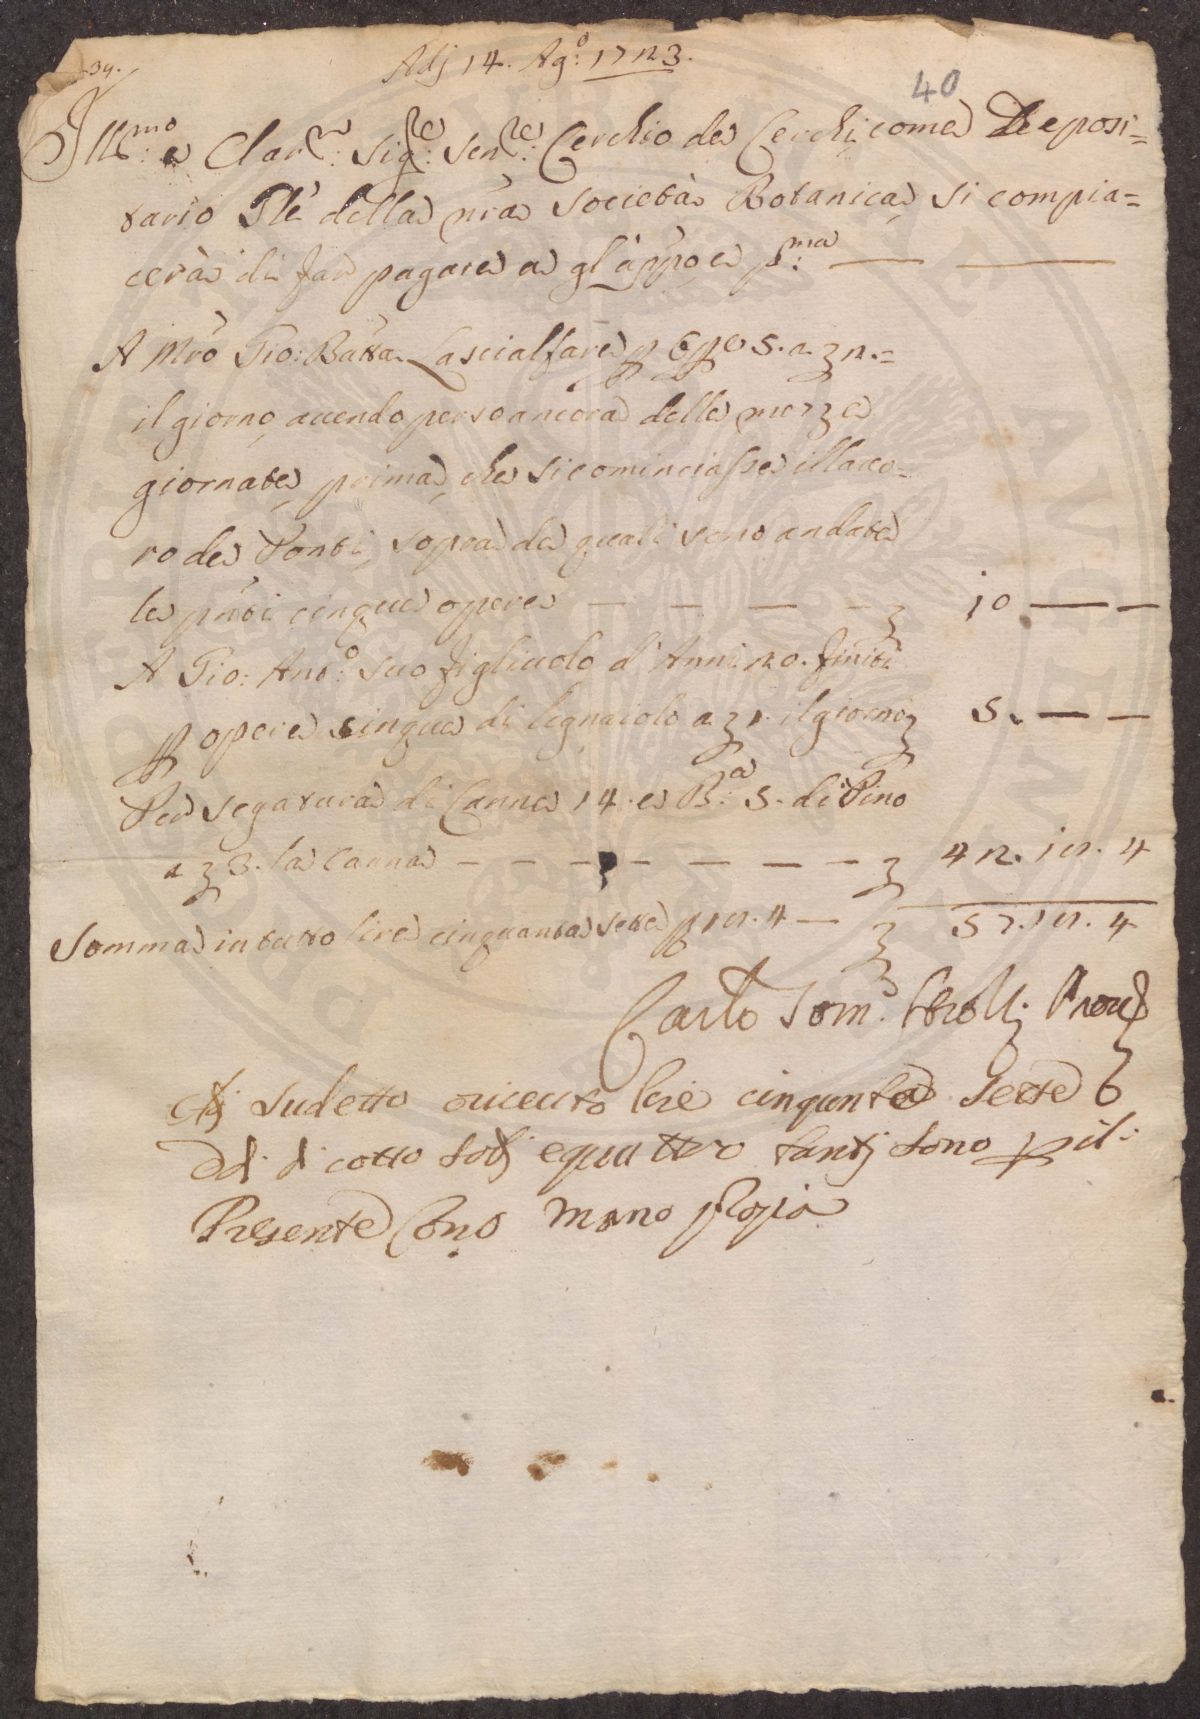 34.
Adj 14. Ag:o 1723.
40
Ill:mo e Clar:mo Sig:re Sen:re Cerchio de Cerchi come Deposi=
tario Gle della nra Società Botanica, si compia=
cerà di far pagare a gl'appo e p:ma
A Mro Gio: Batta Lascialfare p Ope 5. a 2.=
il giorno, auendo perso ancora delle mezze
giornate, prima, che si cominciasse il lauo=
ro de Ponti, sopra de quali sono andate
le pnti cinque opere — — — — 10 — —
A Gio: Ant:o suo figliuolo d'Anni 20. finiti
p opere cinque di legnaiolo a 1. il giorno 5. — —
Per segatura di Canne 14. e B:a 5. di Pino
a 3. la Canna — — — — — — — 42. 18. 4
Somma in tutto lire cinquanta sette p 18. 4 — 57. 18. 4
Carlo Tom:o
Adj sudetto riceuto lire cinqunta sette
di cotto soldj e quattro tantj sono p il:
Presente Cono mano propia